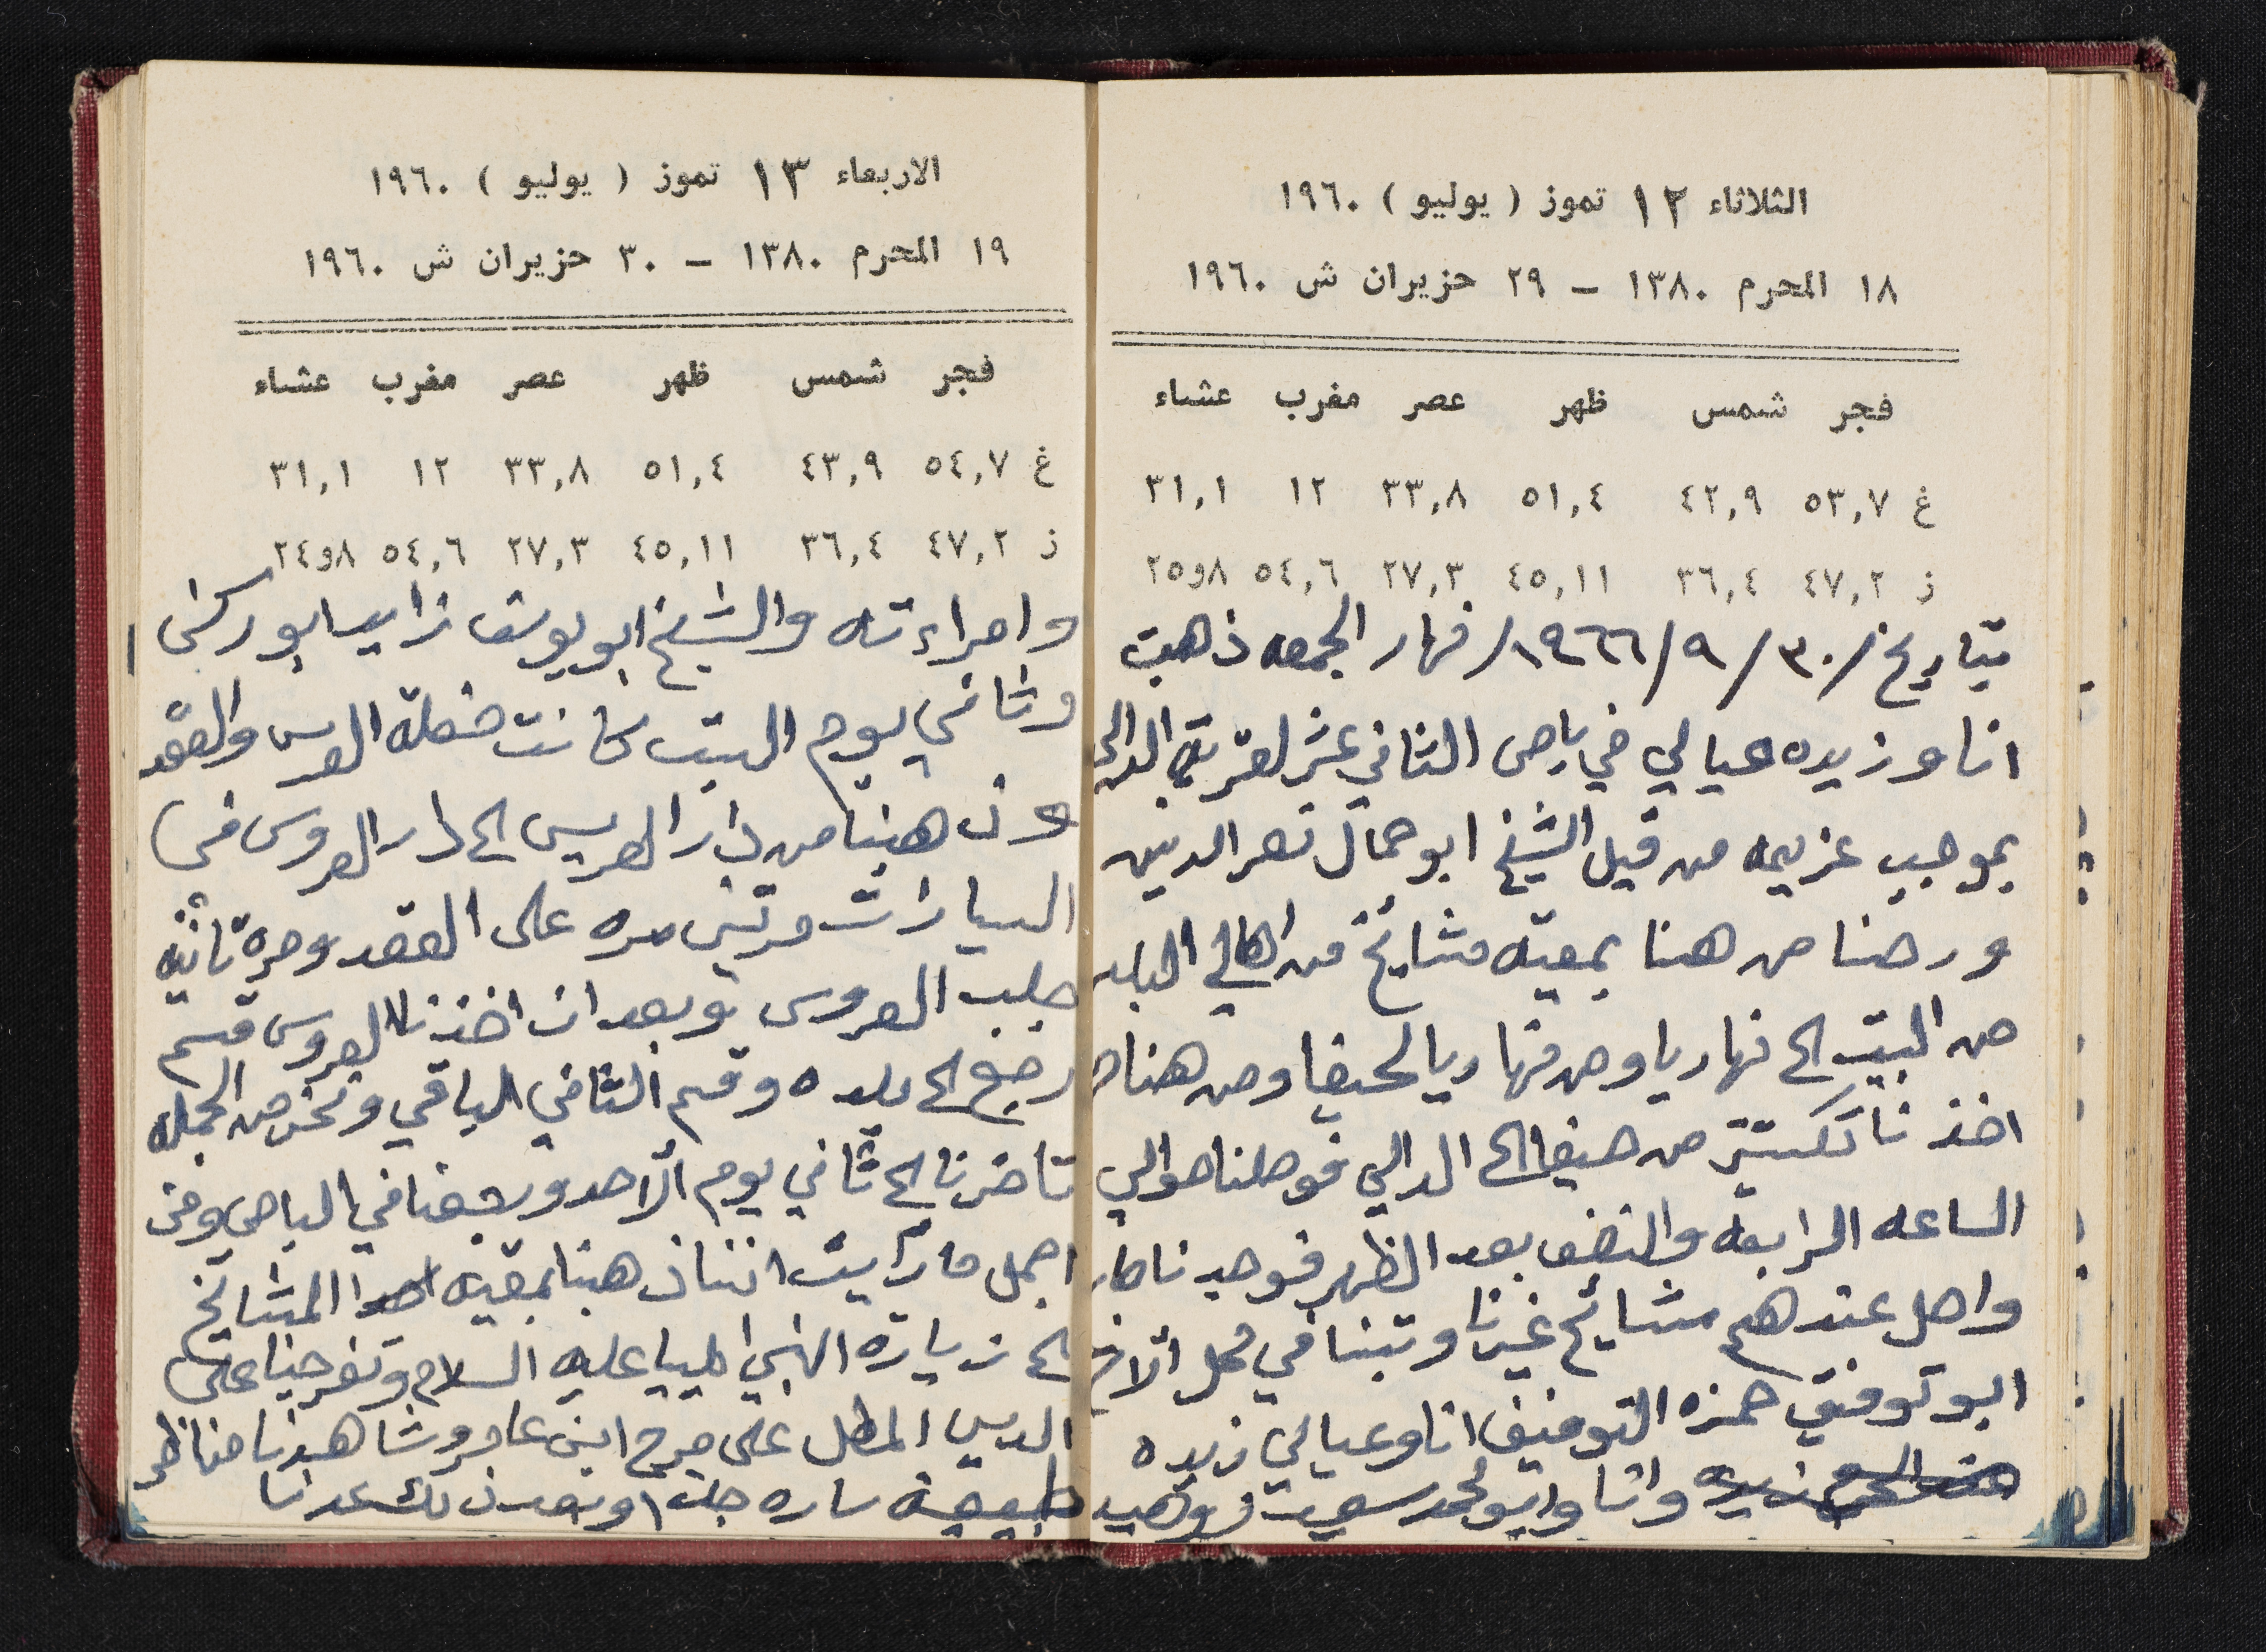 الثلاثاء ١٢ تموز ( يوليو ) ١٩٦٠
١٨ المحرم ١٣٨٠ – ٢٩ حزيران ش ١٩٦٠
فجر شمس ظهر عصر مغرب عشاء
غ ٥٣,٧ ٤٢,٩ ٥١,٤ ٣٣,٨ ١٢ ٣١,١
ز ٤٧,٢ ٣٦,٤ ٤٥,١١ ٢٧,٣ ٥٤,٦ ٨و٢٥
بتاريخ /٣٠/٩/١٩٦٦/ نهار الجمعه ذهبت
انا وزيده عيالي في باص الثاني عشر لقرية الدالي
بموجب عزيمه من قبل الشيخ ابو جمال نصر الدين
ورحنا من هنا بمعية مشايخ من اهالي البلد
من البيت الى نهاريا ومن نهاريا لحيفا ومن هناك
اخذنا تكسي من حيفا الى الدالي فوصلنا حوالي
الساعه الرابعة والنصف بعد الظهر فوجدنا
واصل عندهم مشايخ غيرنا وتبنا في محل الاخ
ابو توفيق حمزه التوفيق انا وعيالي زيده
وانا وابو محمد سعيد ووهيب
الاربعاء ١٣ تموز ( يوليو ) ١٩٦٠
١٩ المحرم ١٣٨٠ – ٣٠ حزيران ش ١٩٦٠
فجر شمس ظهر عصر مغرب عشاء
غ ٥٤,٧ ٤٣,٩ ٥١,٤ ٣٣,٨ ١٢ ٣١,١
ز ٤٧,٢ ٣٦,٤ ٤٥,١١ ٢٧,٣ ٥٤,٦ ٨و٢٤
وامراءته والشيخ ابو يوسف
وثاني يوم السبت كانت حفلة العرس والعقد
وذهبنا من دار العريس الى دار العروس في
السيارات مرتين مره على العقد ومرة ثانيه
جلب العروس وبعد ان اخذنا العروس قسم
رجع الى بلده وقسم الثاني الباقي ونحن من الجمله
تاخرنا الى ثاني يوم الاحد ورجعنا في الباص ومن
اجمل ما رأيت اننا ذهبنا بمعية احد المشايخ
الى زيارة النبي ايليا عليه السلام وتفرجنا على
الدير المطل على مرج ابن عامر وشاهدنا مناظر
طبيعية ساره جدا وبعد ذلك عدنا